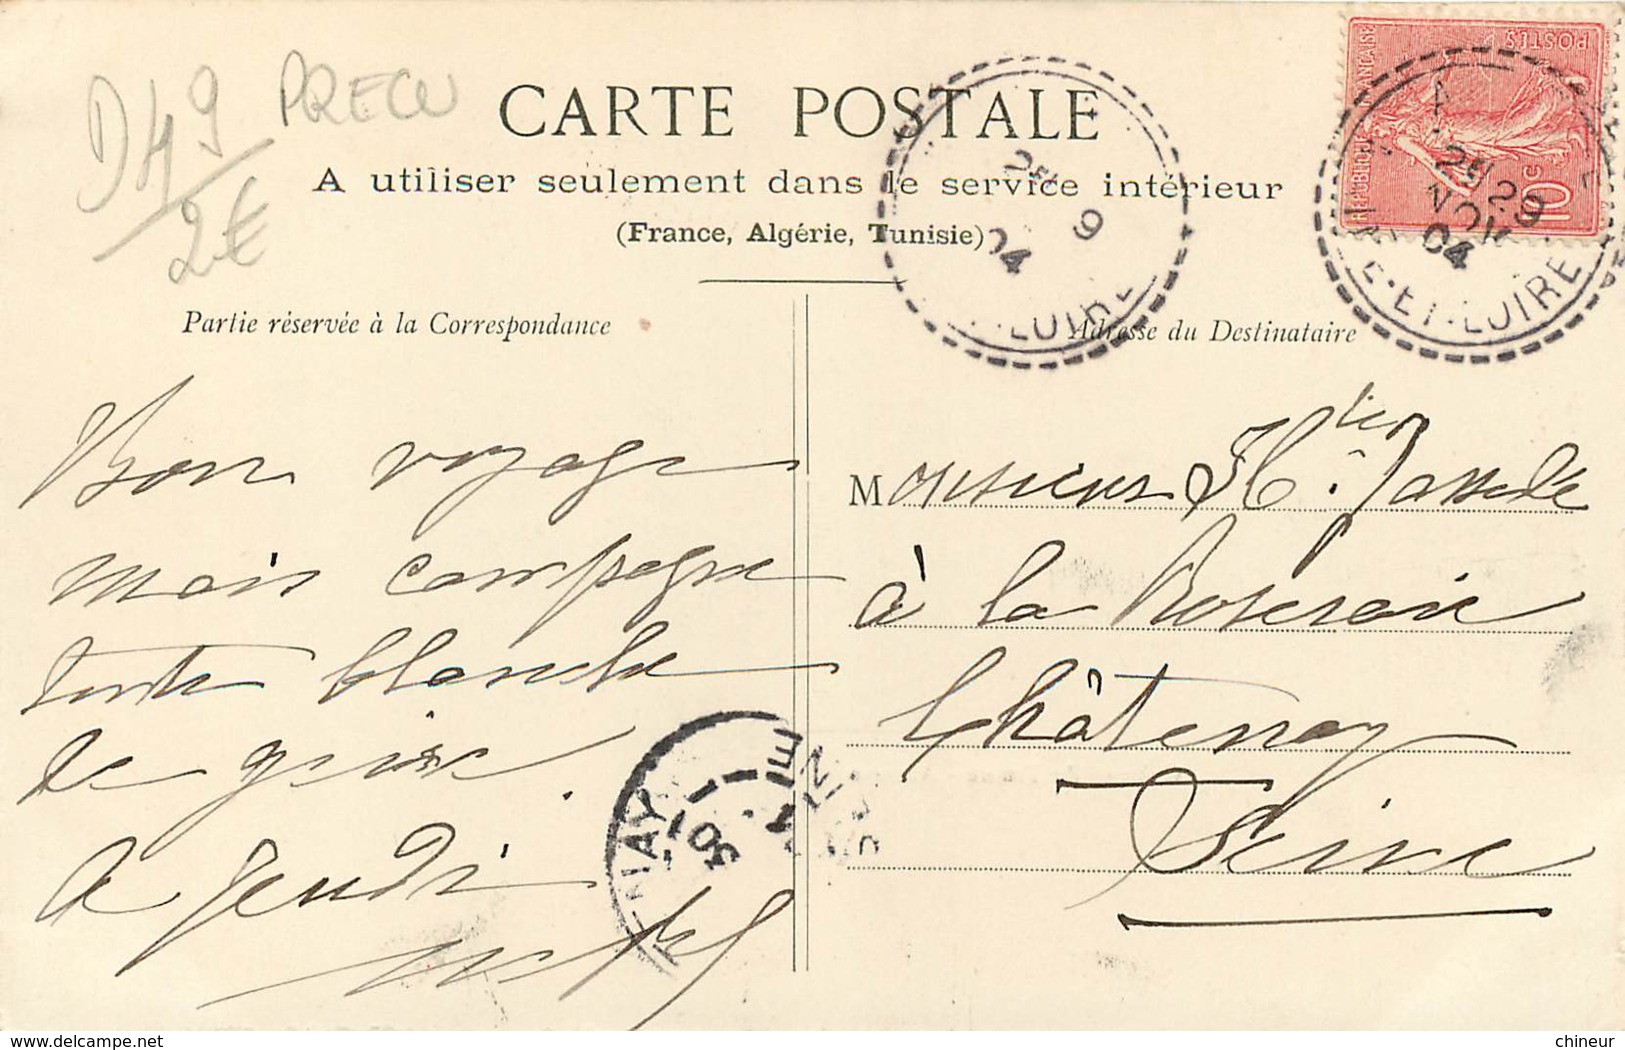 D49 PRECU
2€
CARTE POSTALE
A utiliser seulement dans le service intérieur
(France, Algérie, Tunisie)
RÉPUBLIQUE FRANÇAISE
POSTES
10c
25 9 04
LOIRE
25 29 NOV 04
E-ET-LOIRE
Partie réservée à la Correspondance
Adresse du Destinataire
Bon voyage
mais campagne
toute blanche
de givre.
A Jeudi
Monsieur
à la Roseraie
Châtenay
Seine
NAY SEINE
30
chineur